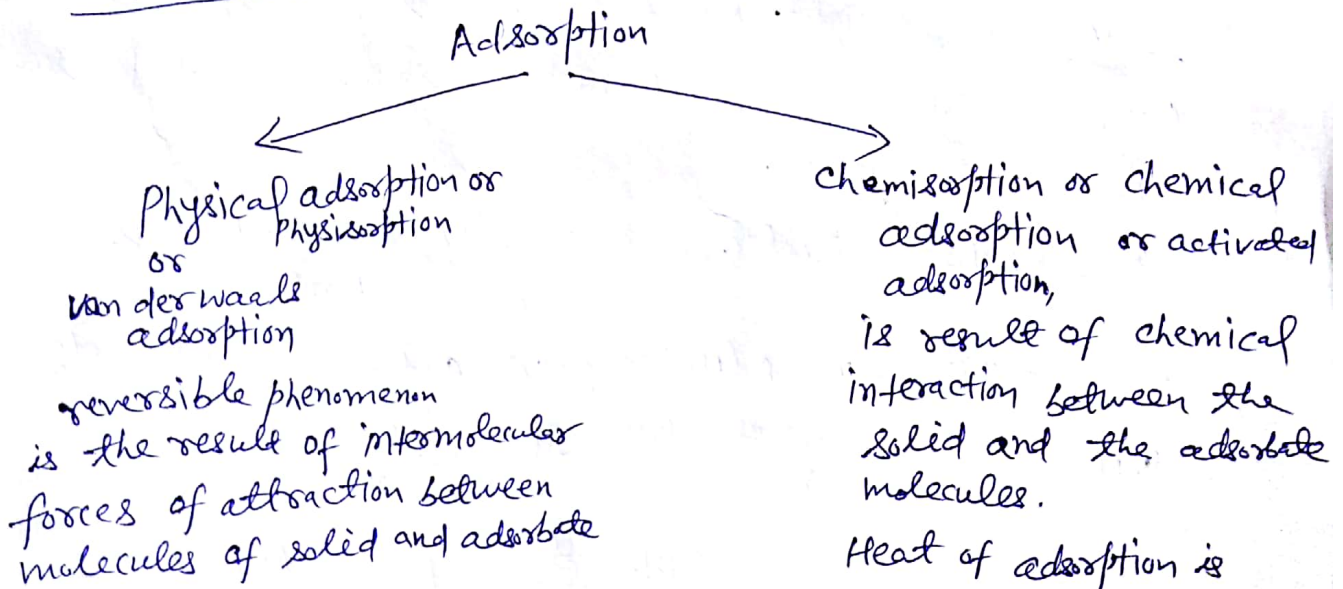 Adsorption
Physical adsorption or
Physisorption
or
van der waals
adsorption
reversible phenomenon
is the result of intermolecular
forces of attraction between
molecules of solid and adsorbate
Chemisorption or chemical
adsorption or activated
adsorption,
is result of chemical
interaction between the
solid and the adsorbate
molecules.
Heat of adsorption is